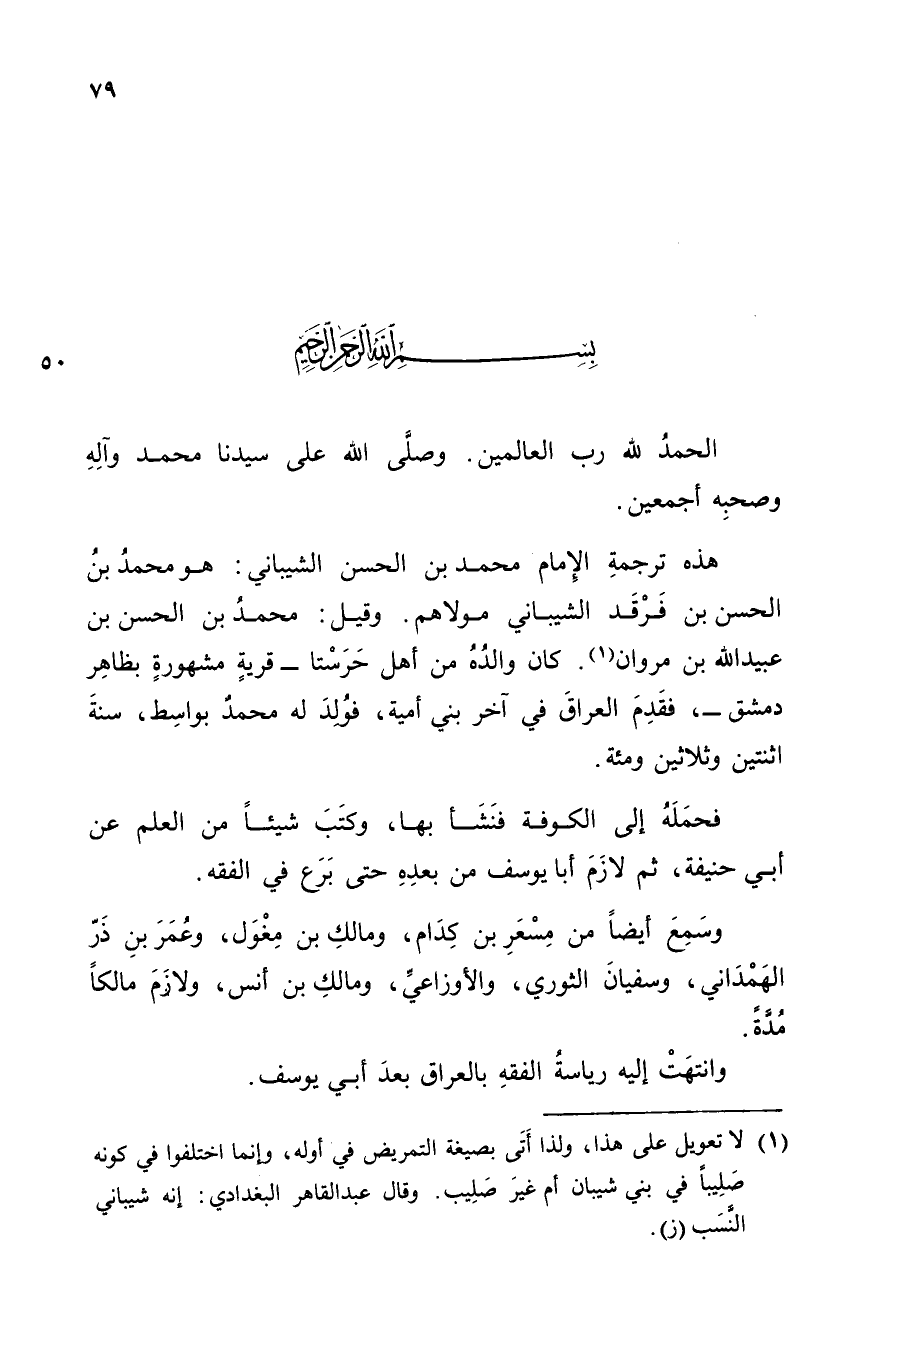 ٧٩
بسم الله الرحمن الرحيم
٥٠
الحمدُ لله رب العالمين. وصلَّى الله على سيدنا محمد وآلِهِ
وصحبِه أجمعين.
هذه ترجمةِ الإمام محمد بن الحسن الشيباني: هو محمدُ بنُ
الحسن بن فَرْقَد الشيباني مولاهم. وقيل: محمدُ بن الحسن بن
عبيدالله بن مروان(١). كان والدُهُ من أهل حَرَسْتا ــ قريةٍ مشهورةٍ بظاهِر
دمشق ــ، فقَدِمَ العراقَ في آخر بني أمية، فوُلِدَ له محمدٌ بواسِط، سنةَ
اثنتين وثلاثين ومئة.
فحمَلَهُ إلى الكوفة فنَشَأ بها، وكتَبَ شيئاً من العلم عن
أبي حنيفة، ثم لازَمَ أبا يوسف من بعدِهِ حتى بَرَع في الفقه.
وسَمِعَ أيضاً من مِسْعَرِ بن كِدَام، ومالكِ بن مِغْوَل، وعُمَرَ بنِ ذَرّ
الهَمْدَاني، وسفيانَ الثوري، والأوزاعيِّ، ومالكِ بن أنس، ولازَمَ مالكاً
مُدَّةً.
وانتهَتْ إليه رياسةُ الفقهِ بالعراق بعدَ أبي يوسف.
(١) لا تعويل على هذا، ولذا أتَى بصيغة التمريض في أوله، وإنما اختلفوا في كونه
صَلِيباً في بني شيبان أم غيرَ صَلِيب. وقال عبدالقاهر البغدادي: إنه شيباني
النَّسَب (ز).